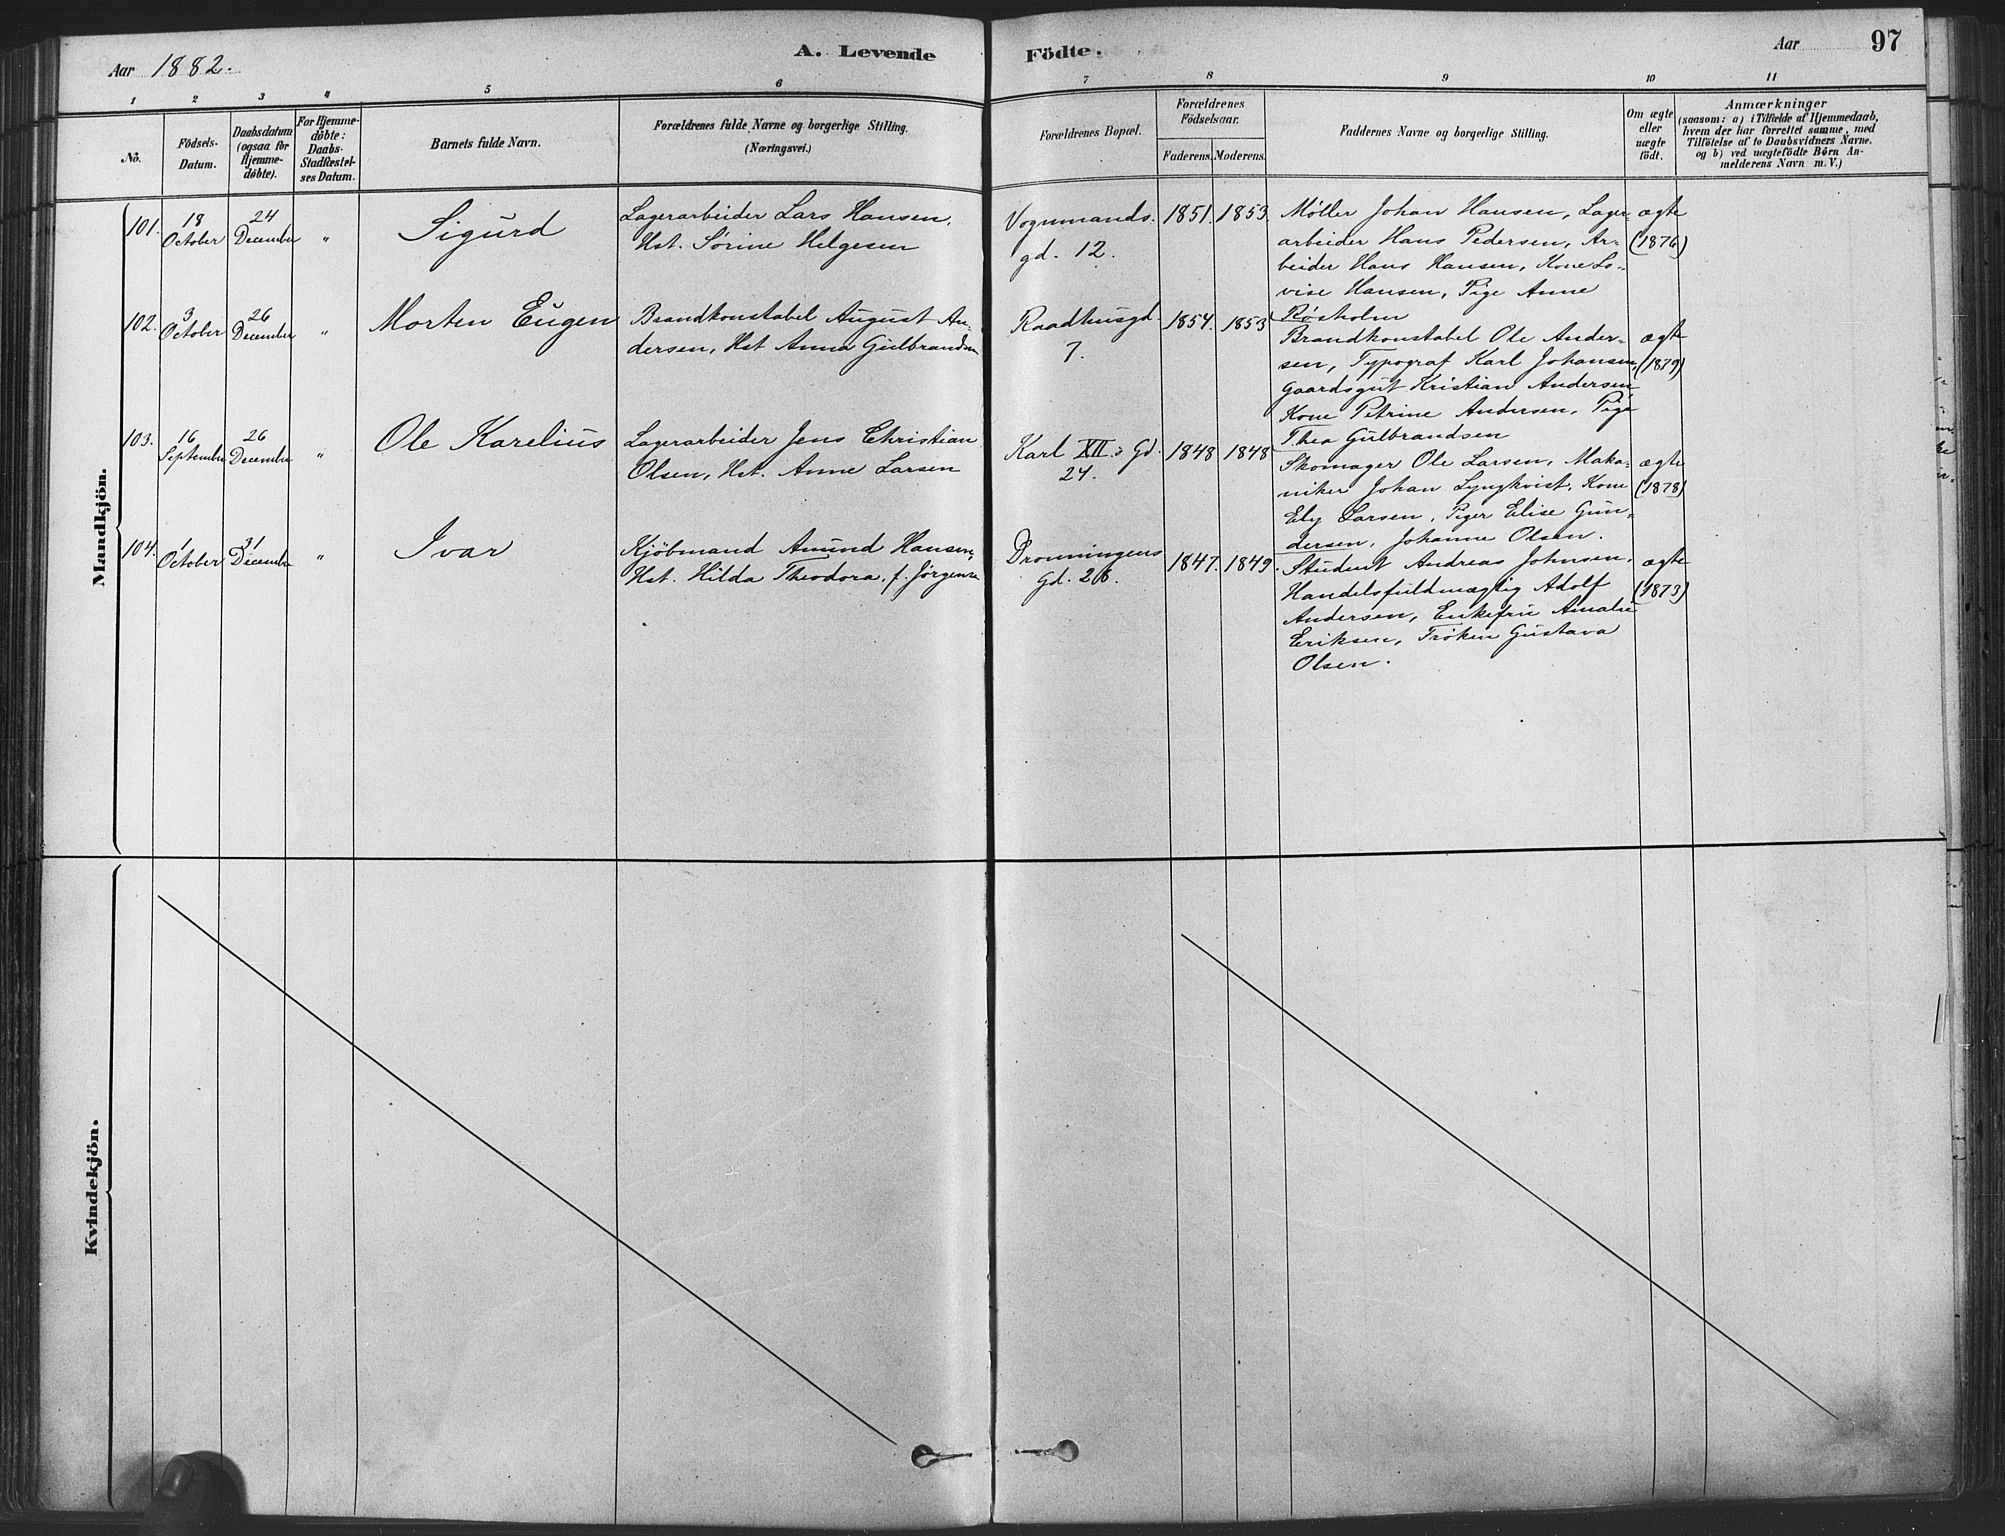 Aar 1882.
A. Levende
Födte.
Aar
97
1
2
3
4
5
6
7
8
9
10
11
No.
Födsels-
Datum.
Daabsdatum
(ogsaa for
Hjemme-
döbte).
For Hjemme-
döbte:
Daabs-
Stadfæstel-
ses Datum.
Barnets fulde Navn.
Forældrenes fulde Navne og borgerlige Stilling.
(Næringsvei.)
Forældrenes Bopæl.
Forældrenes
Födselsaar.
Faderens.
Moderens.
Faddernes Navne og borgerlige Stilling.
Om ægte
eller
uægte
födt.
Anmærkninger
(saasom: a) i Tilfælde af Hjemmedaab,
hvem der har forrettet samme, med
Tilföielse af to Daabsvidners Navne,
og b) ved uægtefödte Börn An-
melderens Navn m. V.)
Mandkjön.
101.
18
October
24
December
"
Sigurd
Lagerarbeider Lars Hansen,
Hst. Sørine Helgesen
Vognmands-
gd. 12.
1851.
1853
Møller Johan Hansen, Lager-
arbeider Hans Pedersen, Ar-
beider Hans Hansen, Kone Lo-
vise Hansen, Pige Anne
Røsholm
ægte
(1876)
102.
3
October
26
December
"
Morten Eugen
Brandkonstabel August An-
dersen, Hst Anna Gulbrandsen
Raadhusgd
7.
1854.
1853
Brandkonstabel Ole Ander-
sen, Typograf Karl Johansen,
Gaardsgut Kristian Andersen
Kone Petrine Andersen, Pige
Thea Gulbrandsen
ægte
(1879)
103.
16
September
26
December
"
Ole Karelius
Lagerarbeider Jens Christian
Olsen, Hst. Anne Larsen
Karl XII.s Gd.
24.
1848
1848
Skomager Ole Larsen, Meka-
niker Johan Lyngkvist, Kone
Ely Larsen, Piger Elise Gun-
dersen, Johanne Olsen.
ægte
(1878)
104.
1
October
31
December
"
Ivar
Kjöbmand Amund Hansen,
Hst. Hilda Theodora, f. Jörgensen
Dronningens
Gd. 28.
1847.
1849.
Student Andreas Johnsen,
Handelsfuldmægtig Adolf
Andersen, Enkefru Amalie
Eriksen, Frøken Gustava
Olsen.
ægte
(1873)
Kvindekjön.